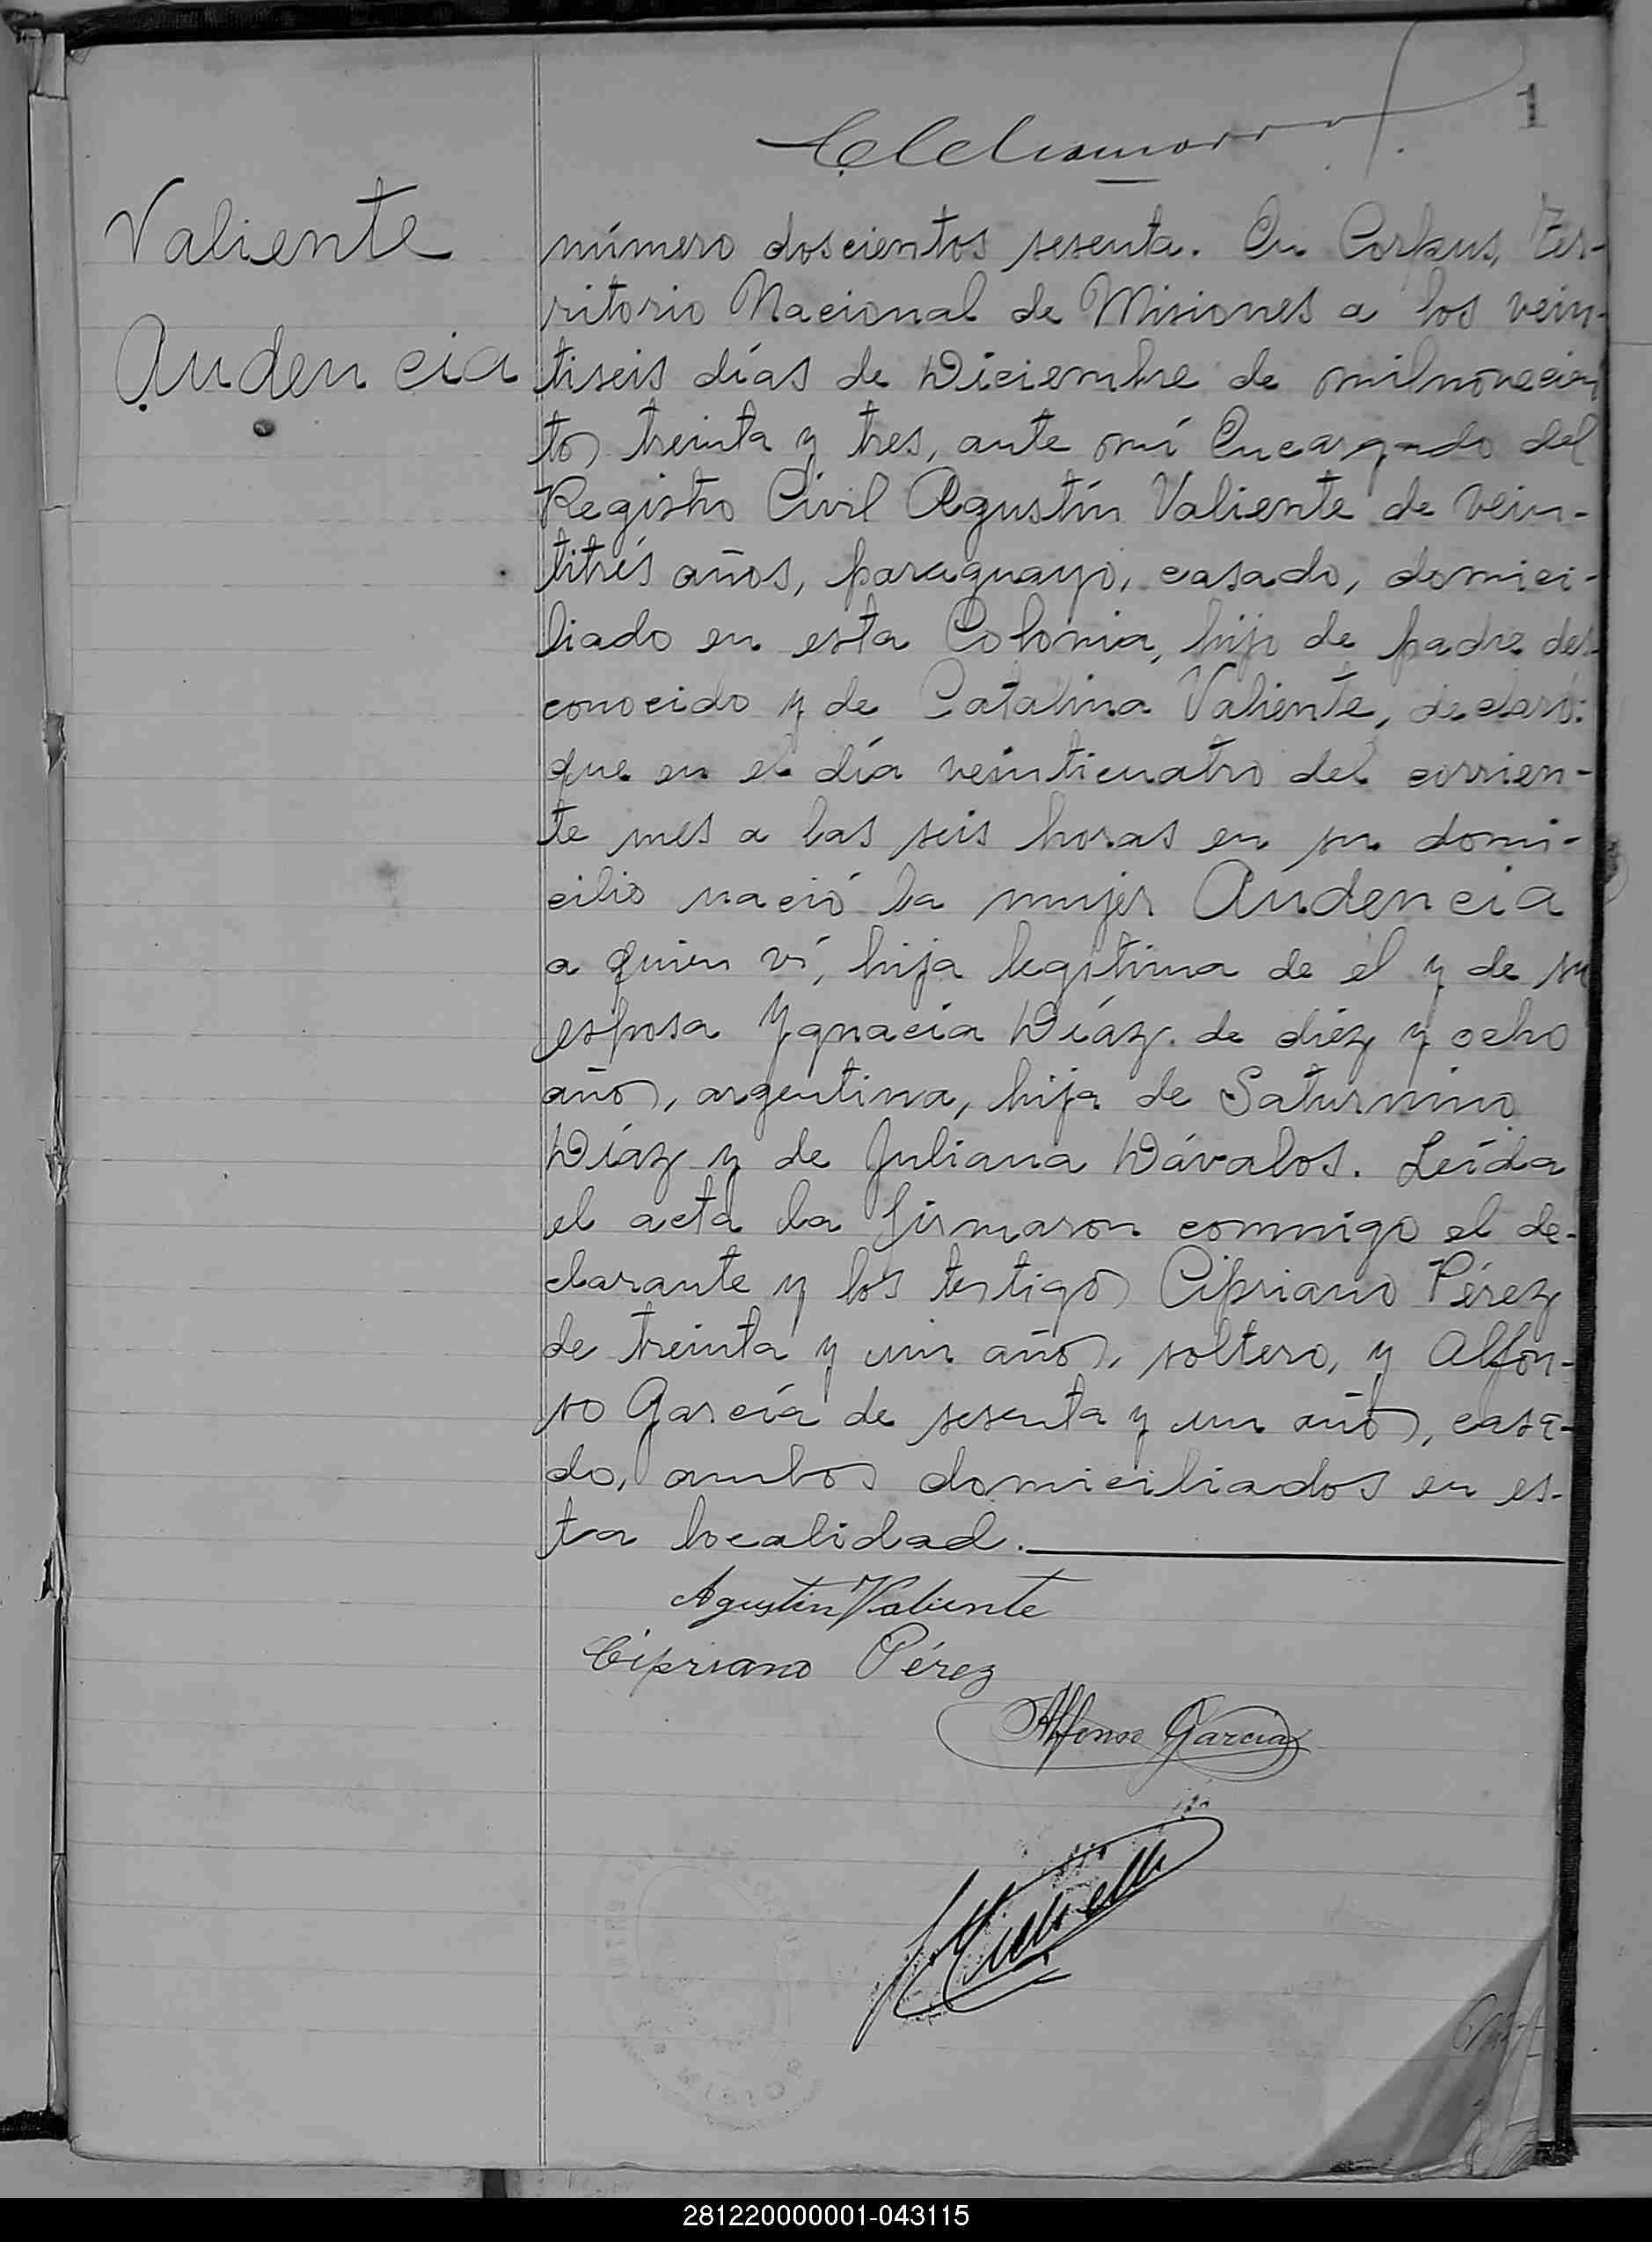 1
Valiente
Audencia
número doscientos sesenta. En Corpus, Ter-
ritorio Nacional de Misiones a los vein-
tiseis días de Diciembre de milnovecien
tos treinta y tres, ante mí Encargado del
Registro Civil Agustín Valiente de vein-
titrés años, paraguayo, casado, domici-
liado en esta Colonia, hijo de padre des-
conocido y de Catalina Valiente, declaró:
que en el día veinticuatro del corrien-
te mes a las seis horas en su domi-
cilio nació la mujer Audencia
a quien ví, hija legítima de el y de su
esposa Ygnacia Díaz de diez y ocho
años, argentina, hija de Saturnino
Díaz y de Juliana Dávalos. Leída
el acta la firmaron conmigo el de-
clarante y los testigos Cipriano Pérez
de treinta y un años, soltero, y Alfon-
so García de sesenta y un años, casa-
do, ambos domiciliados en es-
ta localidad.
Agustin Valiente
Cipriano Pérez
Alfonso Garcia
281220000001-043115